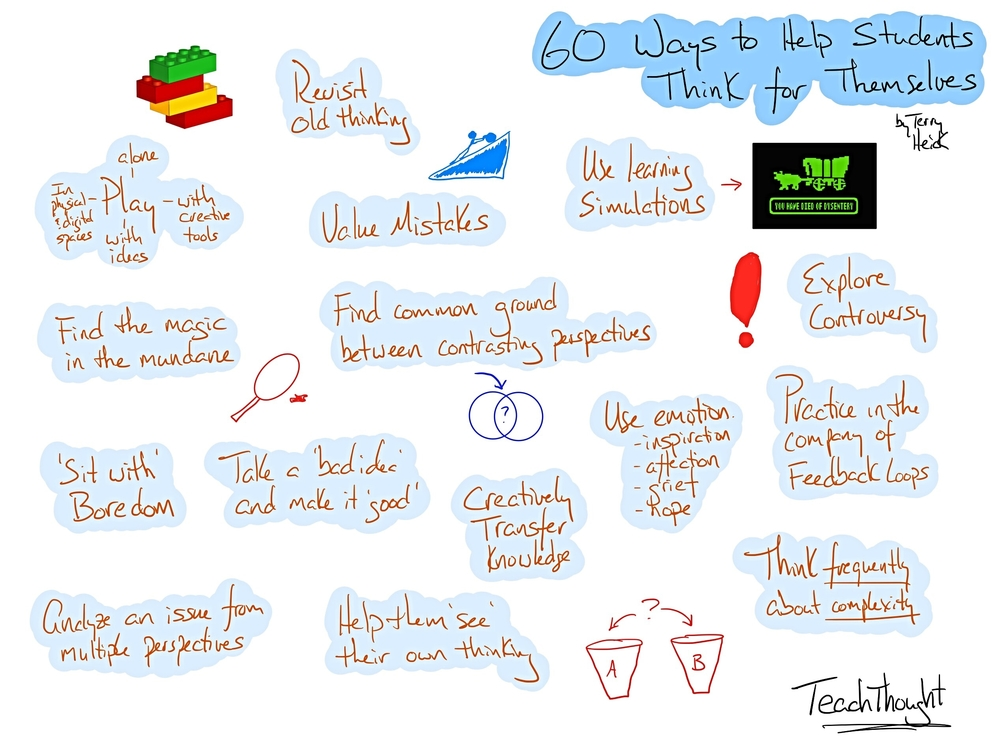 60 Ways to Help Students
Think for Themselves
by Terry
Heick
Revisit
old thinking
alone
In
physical
& digital
spaces
- Play -
with
creative
tools
with
ideas
Value Mistakes
Use learning
Simulations
YOU HAVE DIED OF DYSENTERY
Find the magic
in the mundane
Find common ground
between contrasting perspectives
?
Explore
Controversy
'Sit with'
Boredom
Take a 'bad idea'
and make it 'good'
Creatively
Transfer
Knowledge
Use emotion.
- inspiration
- affection
- grief
- hope
Practice in the
company of
Feedback Loops
Analyze an issue from
multiple perspectives
Help them 'see'
their own thinking
?
A
B
Think frequently
about complexity
TeachThought